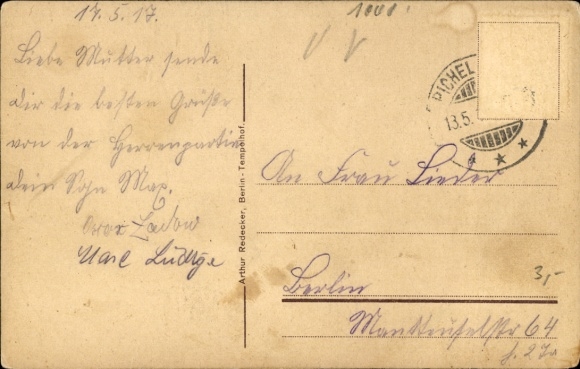 17.5.17.
1001.
Liebe Mutter sende
dir die besten Grüße
von der Herrenpartie
dein Sohn Max.
Karl Lüdtge
Arthur Redecker, Berlin-Tempelhof.
PICHEL
13.5.
An Frau Lieder
3,-
Berlin
Manteufelstr 64